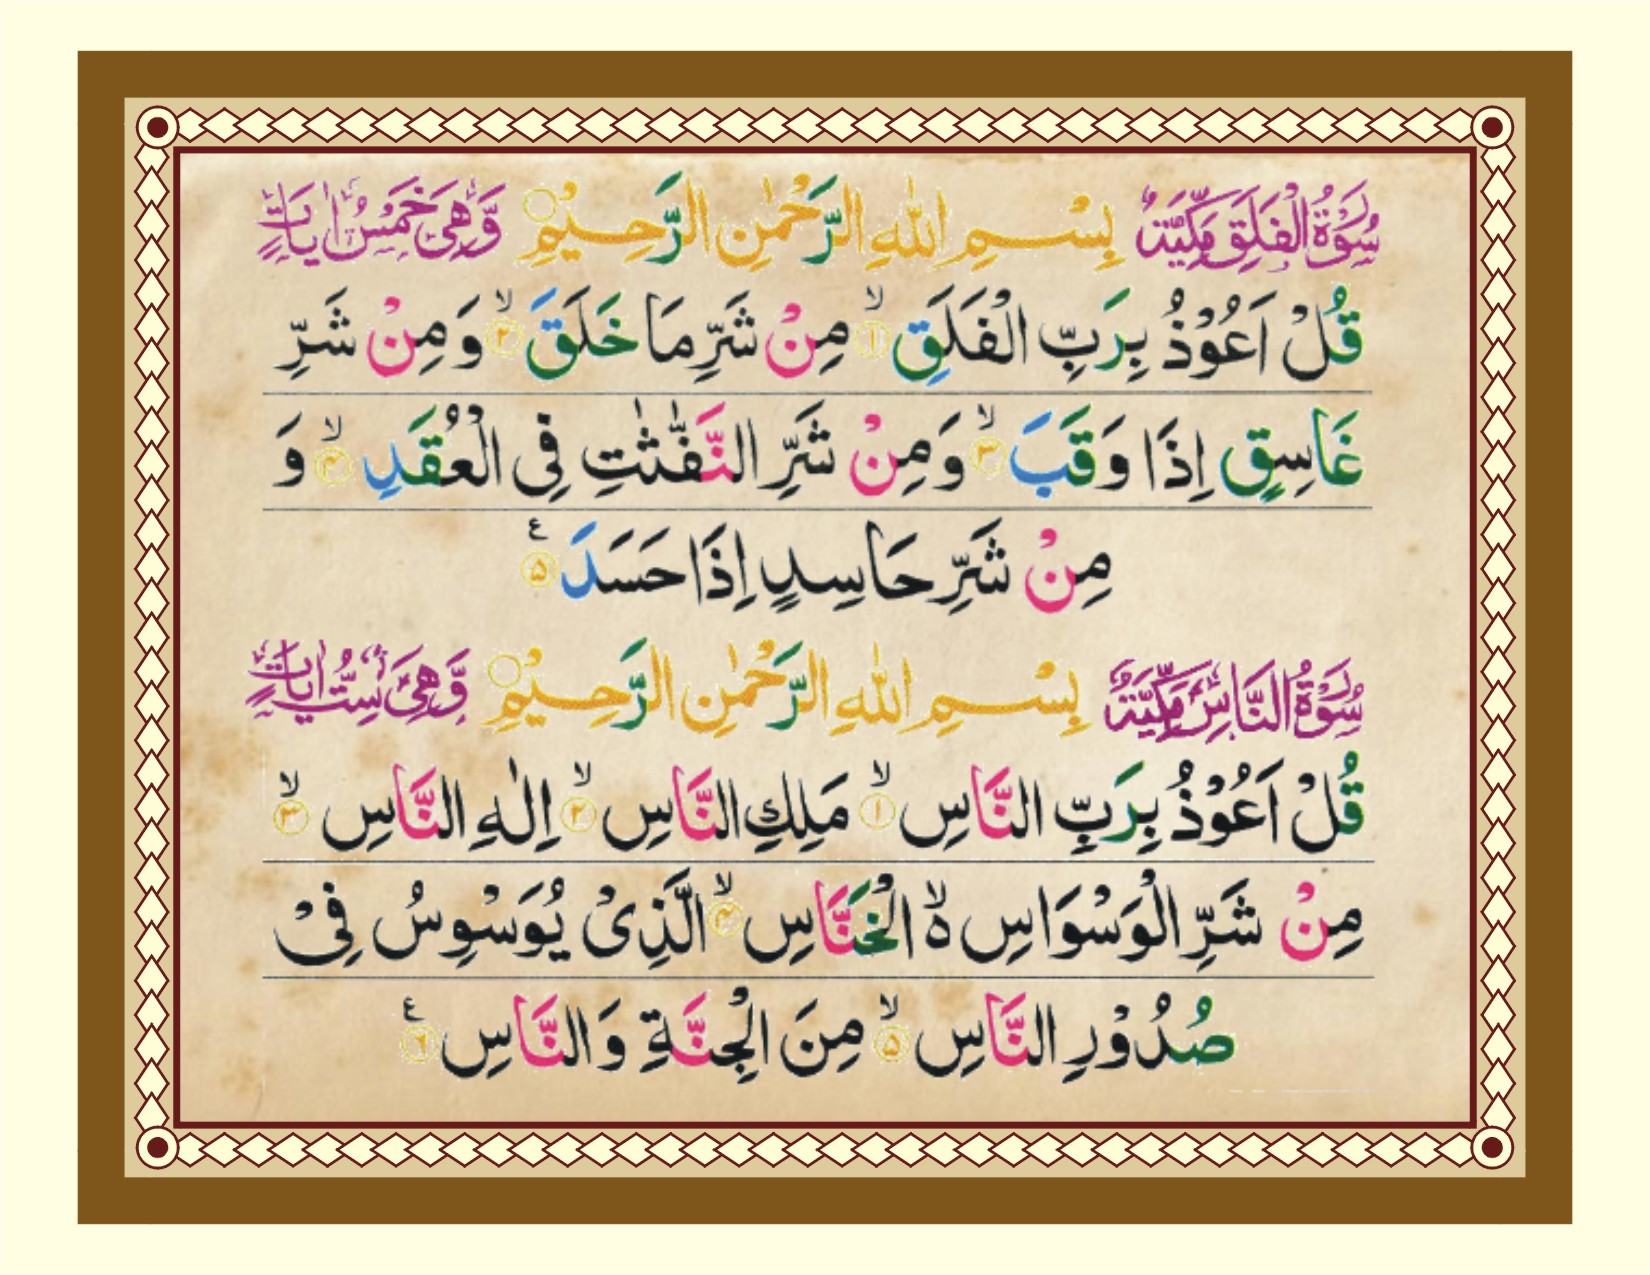 سُوْرَةُ الْفَلَقِ مَكِّيَّةٌ بِسْمِ اللّٰهِ الرَّحْمٰنِ الرَّحِيْمِ وَّهِىَ خَمْسُ اٰيَاتٍ
قُلْ اَعُوْذُ بِرَبِّ الْفَلَقِ ۙ‏﴿۱﴾ مِنْ شَرِّ مَا خَلَقَ ۙ‏﴿۲﴾ وَ مِنْ شَرِّ
غَاسِقٍ اِذَا وَقَبَ ۙ‏﴿۳﴾ وَ مِنْ شَرِّ النَّفّٰثٰتِ فِى الْعُقَدِ ۙ‏﴿۴﴾ وَ
مِنْ شَرِّ حَاسِدٍ اِذَا حَسَدَ ﴿۵﴾ ع
سُوْرَةُ النَّاسِ مَكِّيَّةٌ بِسْمِ اللّٰهِ الرَّحْمٰنِ الرَّحِيْمِ وَّهِىَ سِتُّ اٰيَاتٍ
قُلْ اَعُوْذُ بِرَبِّ النَّاسِ ۙ‏﴿۱﴾ مَلِكِ النَّاسِ ۙ‏﴿۲﴾ اِلٰهِ النَّاسِ ۙ‏﴿۳﴾
مِنْ شَرِّ الْوَسْوَاسِ ۙ۬ الْخَنَّاسِ ۙ‏﴿۴﴾ الَّذِىْ يُوَسْوِسُ فِىْ
صُدُوْرِ النَّاسِ ۙ‏﴿۵﴾ مِنَ الْجِنَّةِ وَ النَّاسِ ﴿٦﴾ ع